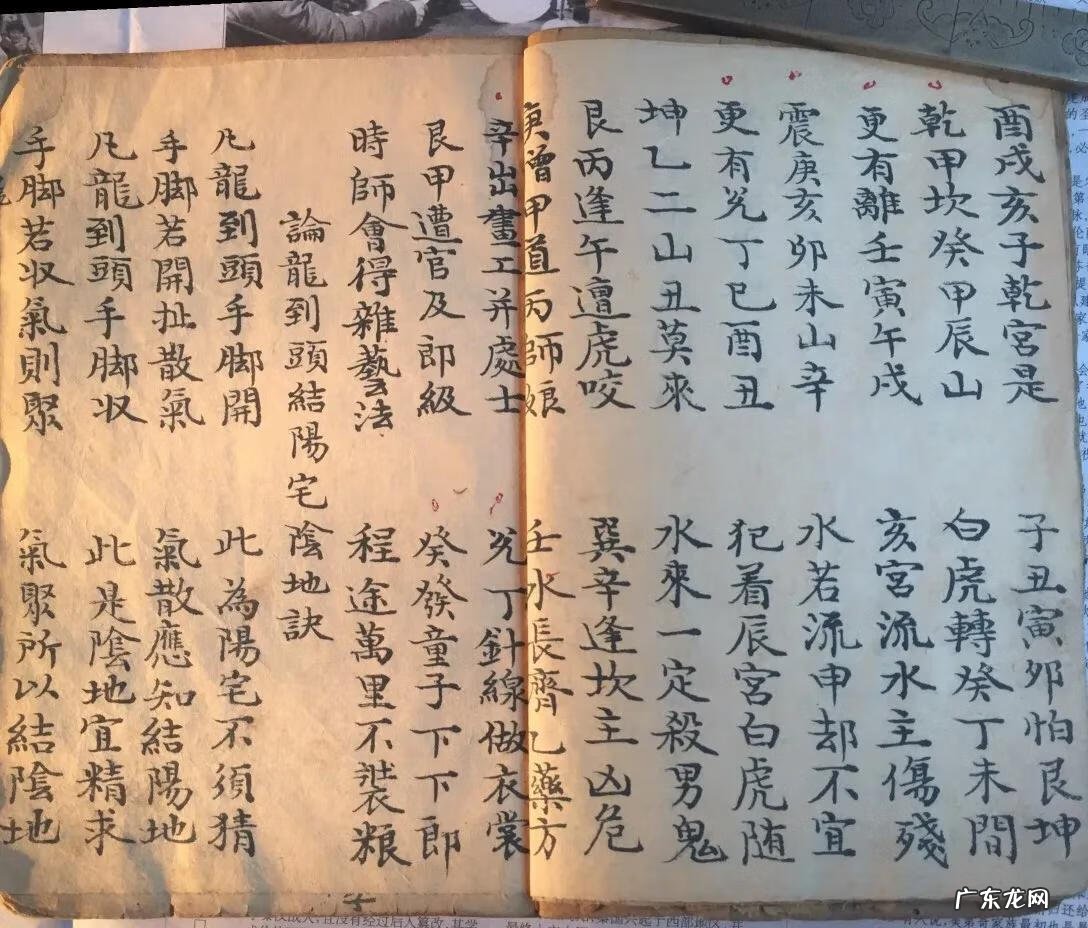 酉戌亥子乾宮是 子丑寅卯怕艮坤
乾甲坎癸甲辰山 白虎轉癸丁未間
更有離壬寅午戌 亥宮流水主傷殘
震庚亥卯未山辛 水若流申却不宜
更有兊丁巳酉丑 犯着辰宮白虎随
坤乙二山丑莫來 水來一定殺男鬼
艮丙逢午遭虎咬 巽辛逢坎主凶危
庚曾甲道丙師娘 壬水長齊乙藥方
辛出畫工并處士 兊丁針線做衣裳
艮甲遭官及郎級 癸發童子下下郎
時師會得雜藝法 程途萬里不裝粮
論龍到頭結陽宅陰地訣
凢龍到頭手脚開 此為陽宅不須猜
手脚若開扯散氣 氣散應知結陽地
凢龍到頭手脚収 此是陰地宜精求
手脚若収氣則聚 氣聚所以結陰地
广东龙网